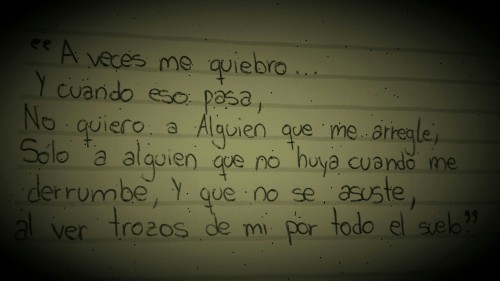 "A veces me quiebro...
Y cuando eso pasa,
No quiero a Alguien que me arregle,
Solo a alguien que no huya cuando me
derrumbe, Y que no se asuste,
al ver trozos de mi por todo el suelo."